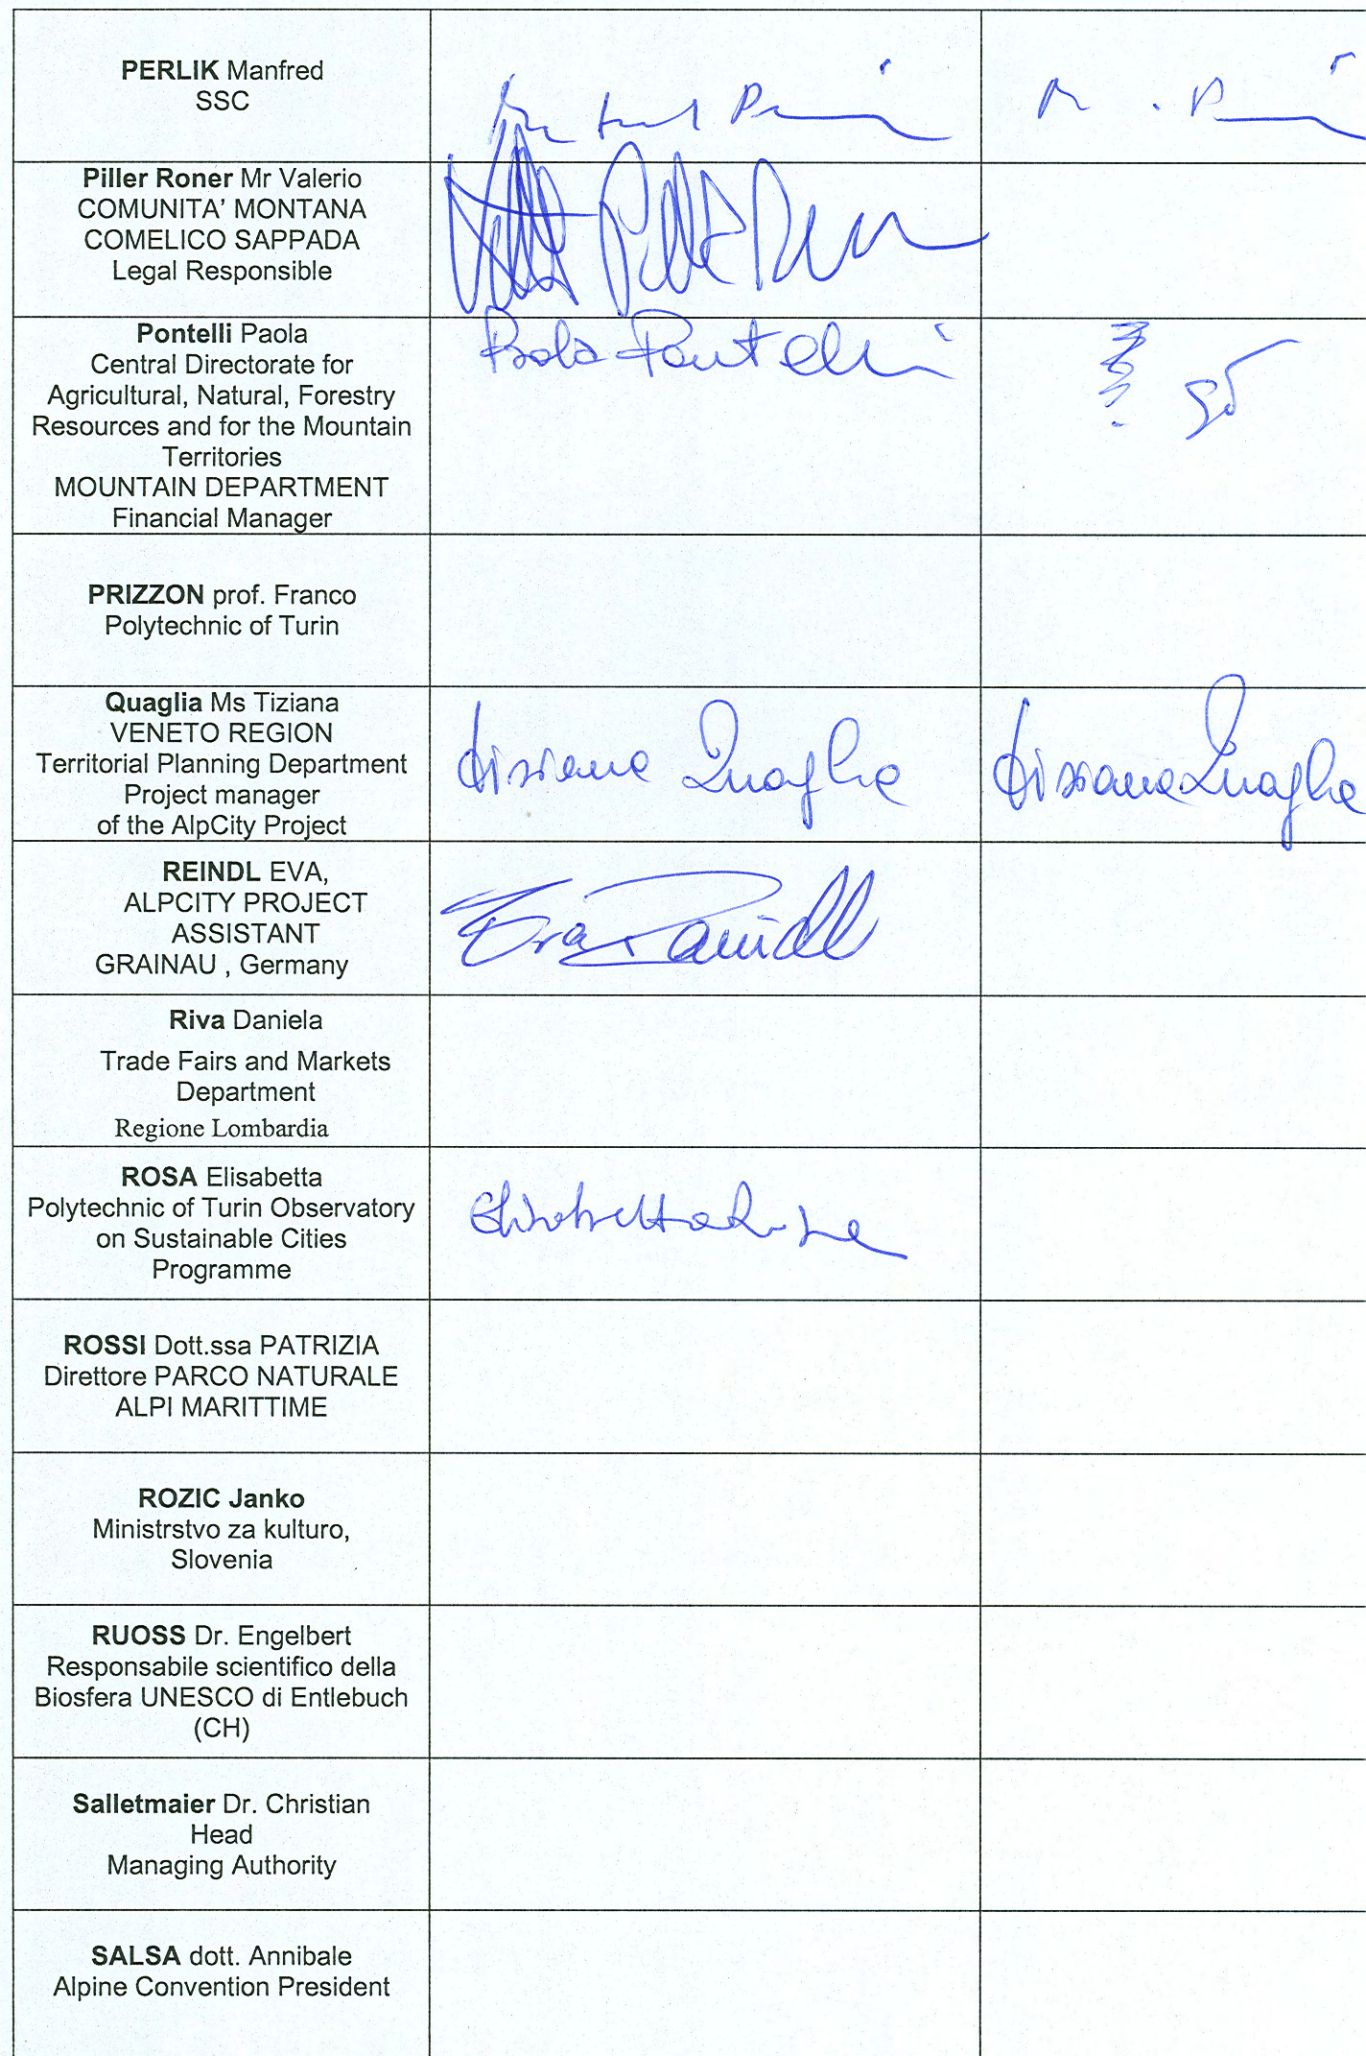 PERLIK Manfred
SSC
Piller Roner Mr Valerio
COMUNITA' MONTANA
COMELICO SAPPADA
Legal Responsible
Pontelli Paola
Central Directorate for
Agricultural, Natural, Forestry
Resources and for the Mountain
Territories
MOUNTAIN DEPARTMENT
Financial Manager
Paola Pontelli
PRIZZON prof. Franco
Polytechnic of Turin
Quaglia Ms Tiziana
VENETO REGION
Territorial Planning Department
Project manager
of the AlpCity Project
Tiziana Quaglia
Tiziana Quaglia
REINDL EVA,
ALPCITY PROJECT
ASSISTANT
GRAINAU , Germany
Eva Reindl
Riva Daniela
Trade Fairs and Markets
Department
Regione Lombardia
ROSA Elisabetta
Polytechnic of Turin Observatory
on Sustainable Cities
Programme
Elisabetta Rosa
ROSSI Dott.ssa PATRIZIA
Direttore PARCO NATURALE
ALPI MARITTIME
ROZIC Janko
Ministrstvo za kulturo,
Slovenia
RUOSS Dr. Engelbert
Responsabile scientifico della
Biosfera UNESCO di Entlebuch
(CH)
Salletmaier Dr. Christian
Head
Managing Authority
SALSA dott. Annibale
Alpine Convention President